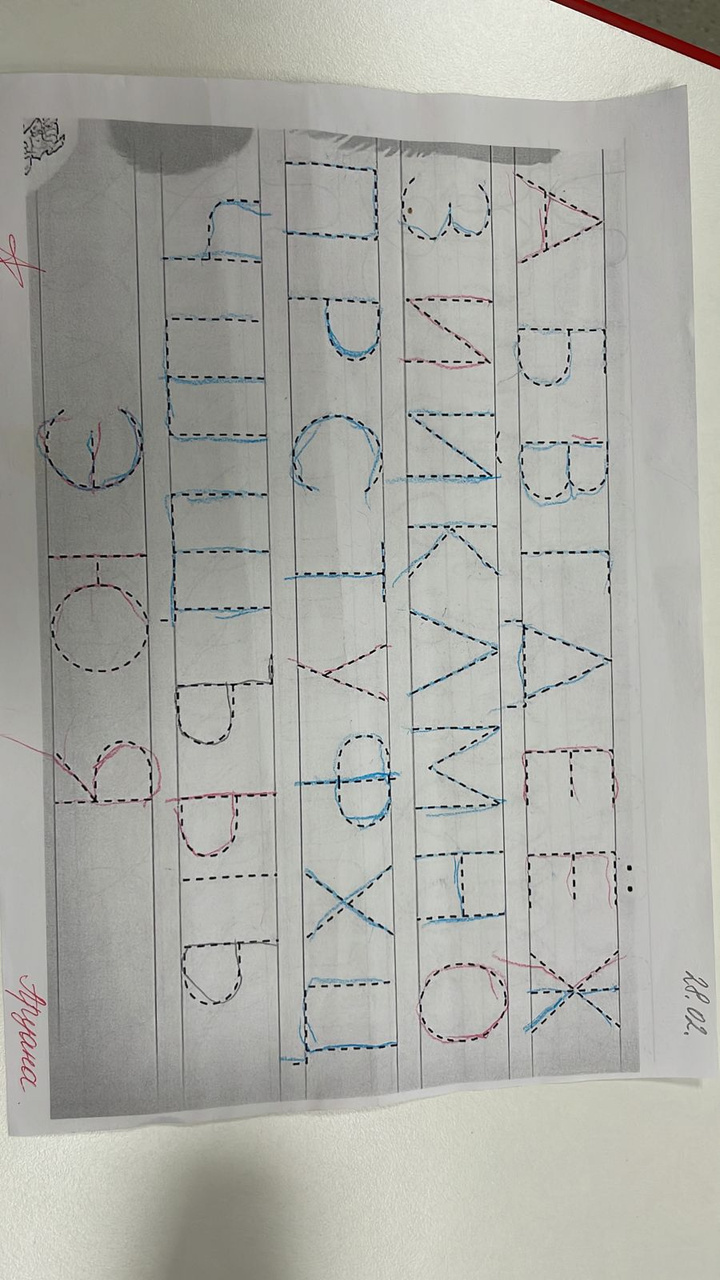 28.02.
А Б В Г Д Е Ё Ж
З И Й К Л М Н О
П Р С Т У Ф Х Ц
Ч Ш Щ Ъ Ы Ь
Э Ю Я